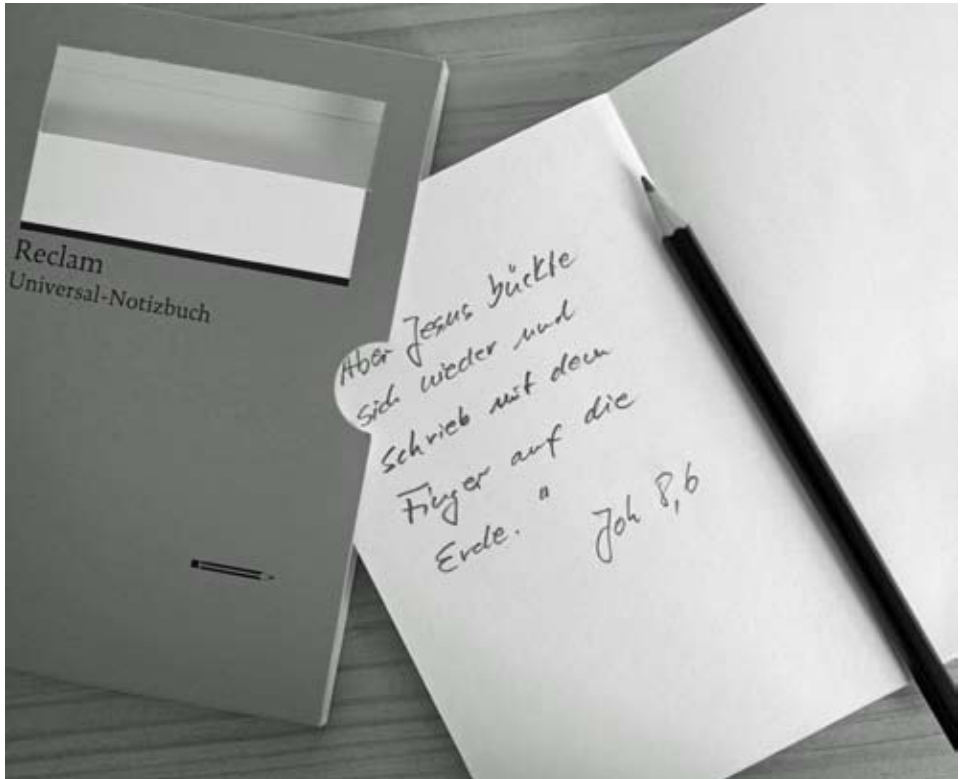 Reclam
Universal-Notizbuch
Aber Jesus bückte
sich wieder und
schrieb mit dem
Finger auf die
Erde. " Joh 8,6